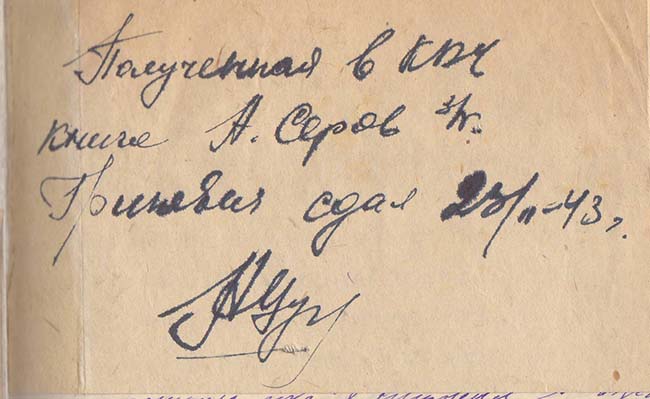 Полученная в КВЧ
книга А. Серов з/к.
Гриневич сдал 23/II-43 г.